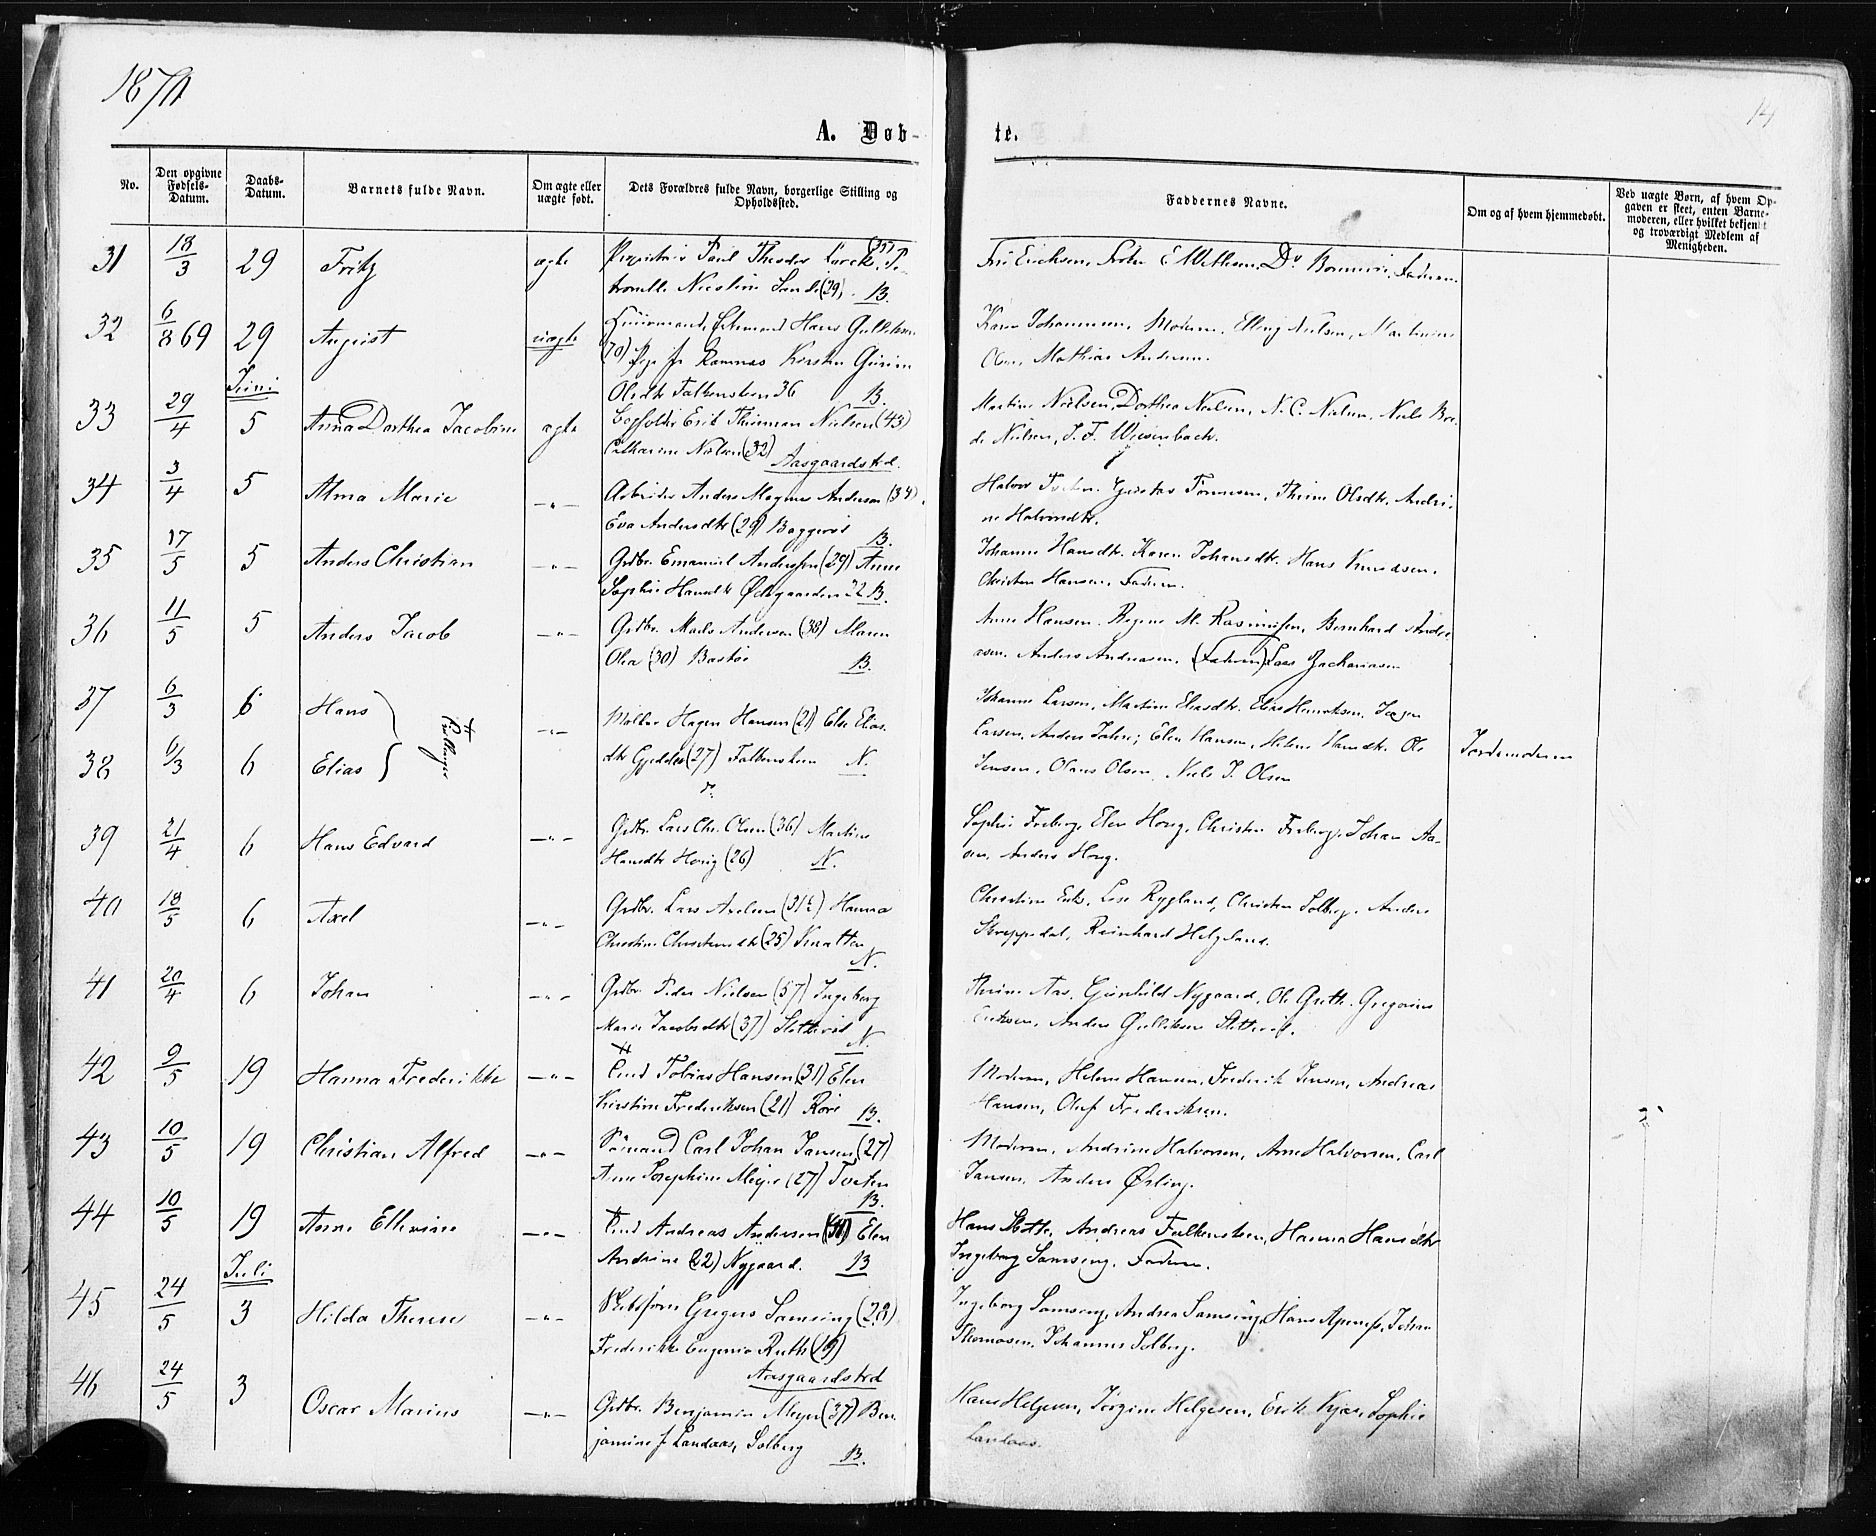 1870
14
A. Døb-
te.
No.
Den opgivne Fødsels-Datum.
Daabs-Datum.
Barnets fulde Navn.
Om ægte eller uægte født.
Dets Forældres fulde Navn, borgerlige Stilling og Opholdssted.
Faddernes Navne.
Om og af hvem hjemmedøbt.
Ved uægte Børn, af hvem Opgaven er skeet, enten Barnemoderen, eller hvilket bekjendt og troværdigt Medlem af Menigheden.
31 18/3 29 Fritz ægte Proprietair Paul Theodor (35)
Nicoline (29). B.
Faderen.
32 6/8 69 29 August uægte Huusmand, Gulliksen
(70) Ramnæs Kirsten
Olsdtr Falkensteen 36 B.
Karen Johannesen, Moderen, Elling Nielsen,
Olsen, Mathias Andersen.
Juni
33 29/4 5 Anna Dorthea Jacobine ægte Erik Thurman Nielsen (43)
Catharine Nielsen (32) Aasgaardstrd.
Martine Nielsen, Dorthea Nielsen, N. C. Nielsen, Niels
Nielsen, J. F. Wiesenbach.
34 3/4 5 Alma Marie -"- Arbeider Anders Magnus Anderson (34)
Eva Andersdtr (29) Baggerød B.
Halvor Gustav Tønnesen, Thrine Olsdtr. Andri-
ne Halvorsdtr.
35 17/5 5 Anders Christian -"- Grdbr. Emanuel Anderssen (29) Anne
Sophie Hansdtr Ødegaarden 22 B.
Johanne Hansdtr. Karen Johansdtr. Hans Knudsen.
Christen Hansen. Faderen.
36 11/5 5 Anders Jacob -"- Grdbr. Mads Andersen (38) Maren
Olea (30) Bastøe B.
Anne Hansen. Regine M. Rasmussen, Bernhard Andre-
asen. Anders Andreasen. (Faderen) Lars Zachariasen
37 6/3 6 Hans
Tvillinger
-"- Møller Hagen Hansen (21) Else Elias-
dtr Gjedder (27) Falkensteen N.
Johanne Larsen, Martine Eliasdtr. Elias Henriksen.
38 6/3 6 Elias
do
Larsen. Anders Elen Hansen, Helene Hansdtr. Ole
Jensen, Olaus Olsen. Niels J. Olsen
Jordemoderen
39 21/4 6 Hans Edvard -"- Grdbr. Lars Chr. Olsen (36) Martine
Hansdtr (26) N.
Sophie Freberg, Elen Houg, Christen Freberg, Johan
Anders Houg.
40 18/5 6 Axel -"- Grdbr. Lars Axelsen (31½) Hanna
Christine Christensdtr (25) Knatten
N.
Christine Rygland, Christen Solberg. Anders
Skreppedal, Reinhard Helgeland.
41 20/4 6 Johan -"- Grdbr. Peder Nielsen (57) Ingeborg
Marie Jacobsdtr (37) Sletterød
N.
Thrine Aas, Gunhild Nygaard, Ole Gregorius
Eriksen, Anders Gulliksen Sletterød.
42 9/5 19 Hanna Frederikke -"- Tobias Hansen (31) Elen
Kirstine Frederiksen (21) Røre B.
Moderen, Helene Hansen, Frederik Jensen, Andreas
Hansen, Oluf Frederiksen.
43 10/5 19 Christian Alfred -"- Sømand Carl Johan Jansen (27)
Anne Josephine Meyer (27) Tveten
B.
Moderen, Andrine Halvorsen, Arne Halvorsen, Carl
Jansen, Anders Ørling.
44 10/5 19 Anne Ellevine -"- Andreas Andersen Elen
Andrine (22) Nygaard. B
Hans Andreas Falkensteen, Hanna Hansdtr
Ingeborg Samsing. Faderen.
Juli
45 24/5 3 Hilda Therese -"- Gregers Samsing (28)
Frederikke Eugenie Ruth (19)
Aasgaardstrd
Ingeborg Samsing, Andrea Samsing, Hans Johan
Thomasen. Johannes Solberg.
46 24/5 3 Oscar Marius -"- Grdbr. Benjamin Meyer (37) Ben-
jamine f. Landaas, Solberg B.
Hans Helgesen, Jørgine Helgesen, Erik Kjær, Sophie
Landaas.